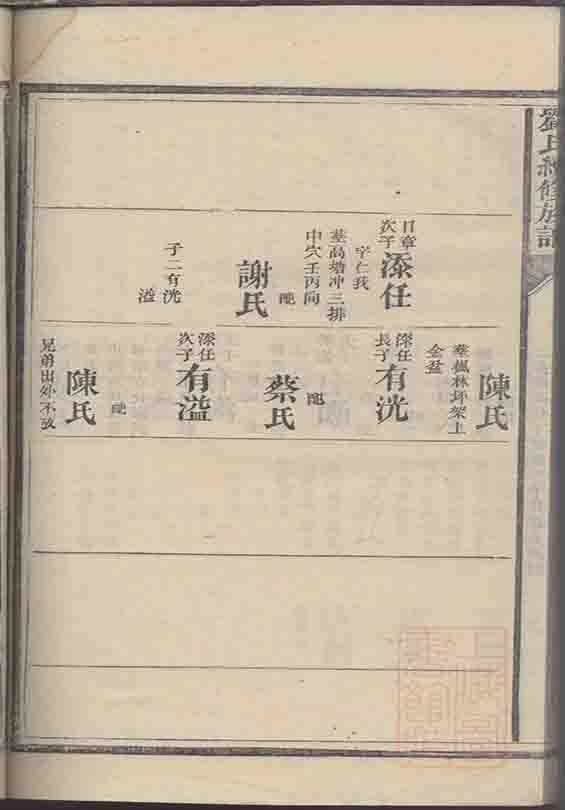 劉氏續修族譜
日章
次子
添任
字仁我
葬高塘冲三排
中穴壬丙向
配
謝氏
子二有洸
溢
陳氏
葬楓林坪架上
金盆
添任
長子
有洸
配
蔡氏
添任
次子
有溢
配
陳氏
兄弟出外不攷